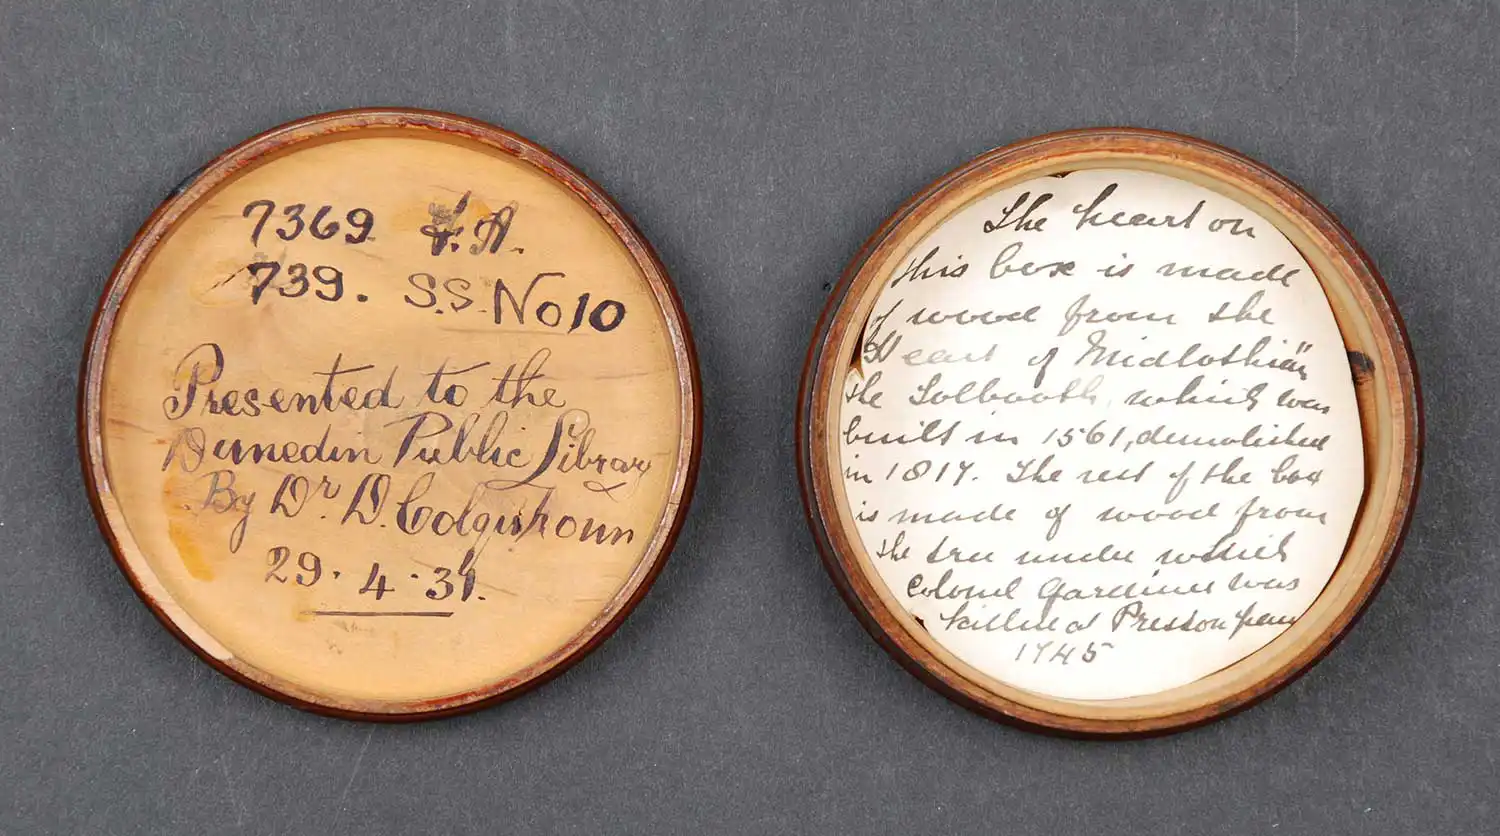 7369 F.A.
739. S.S. No 10
Presented to the
Dunedin Public Library
By Dr. D. Colquhoun
29.4.31.
The heart on
this box is made
of wood from the
"Heart of Midlothian"
the Tolbooth, which was
built in 1561, demolished
in 1817. The rest of the box
is made of wood from
the tree under which
Colonel Gardiner was
killed at Preston pans
1745